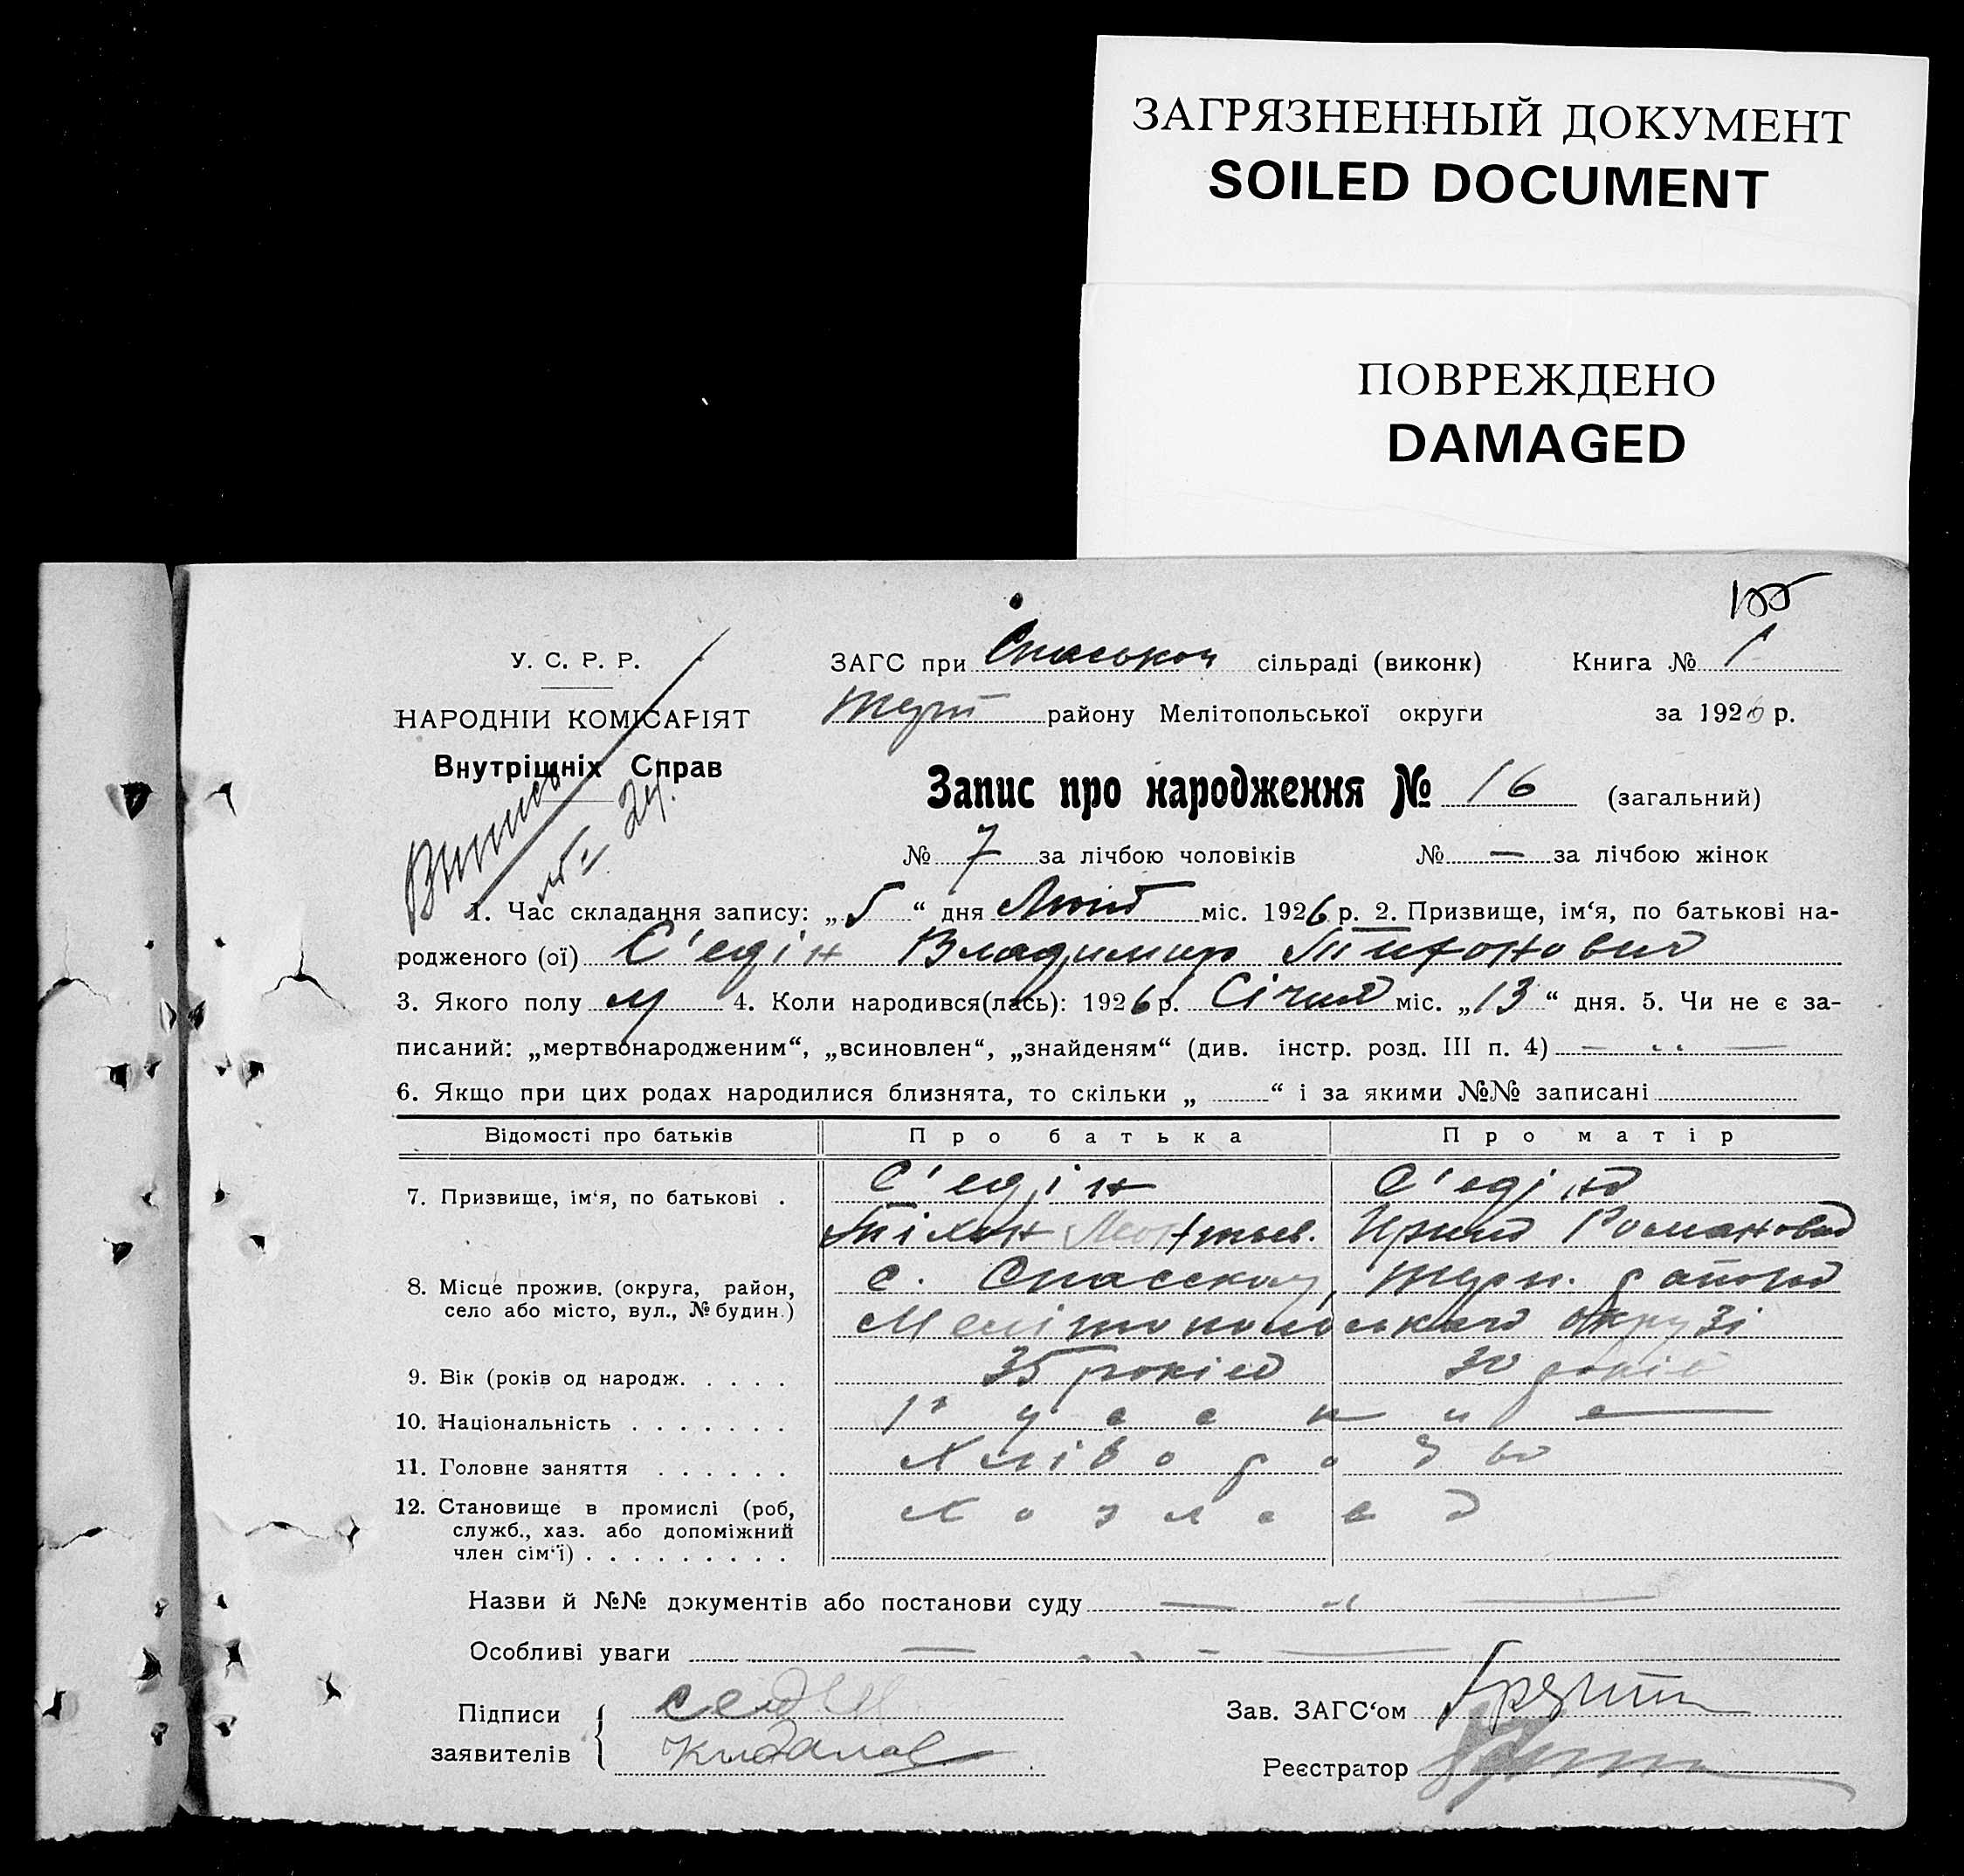 ЗАГРЯЗНЕННЫЙ ДОКУМЕНТ
SOILED DOCUMENT
ПОВРЕЖДЕНО
DAMAGED
155
У. С. Р. Р.
НАРОДНІЙ КОМІСАРІЯТ
Внутрішніх Справ
ЗАГС при Спаськой сільраді (виконк) Книга № 1
району Мелітопольської округи за 1926 р.
Запис про народження № 16 (загальний)
№ 7 за лічбою чоловіків № — за лічбою жінок
1. Час складання запису: „5“ дня Лют міс. 1926 р. 2. Призвище, ім‘я, по батькові на-
родженого (ої) С'едін Владимир Тихонович
3. Якого полу м 4. Коли народився(лась): 1926 р. Січня міс. „13“ дня. 5. Чи не є за-
писаний: „мертвонародженим“, „всиновлен“, „знайденям“ (див. інстр. розд. III п. 4) — „ —
6. Якщо при цих родах народилися близнята, то скільки „ “ і за якими №№ записані
Відомості про батьків Про батька Про матір
7. Призвище, ім‘я, по батькові . С'едін С'едіна
Тіхон Леонтьев. Ирина Романовна
8. Місце прожив. (округа, район, село або місто, вул., № будин.) с. Спасскому,
Мелітопольского округі
9. Вік (років од народж. . . . . 35 років 30 років
10. Національність . . . . . . . Русские —
11. Головне заняття . . . . . . Хлібороб
12. Становище в промислі (роб, служб., хаз. або допоміжний член сім‘ї) . . . . . . . . .
Назви й №№ документів або постанови суду — „ —
Особливі уваги — „ — —
Підписи заявителів
Зав. ЗАГС‘ом
Реєстратор